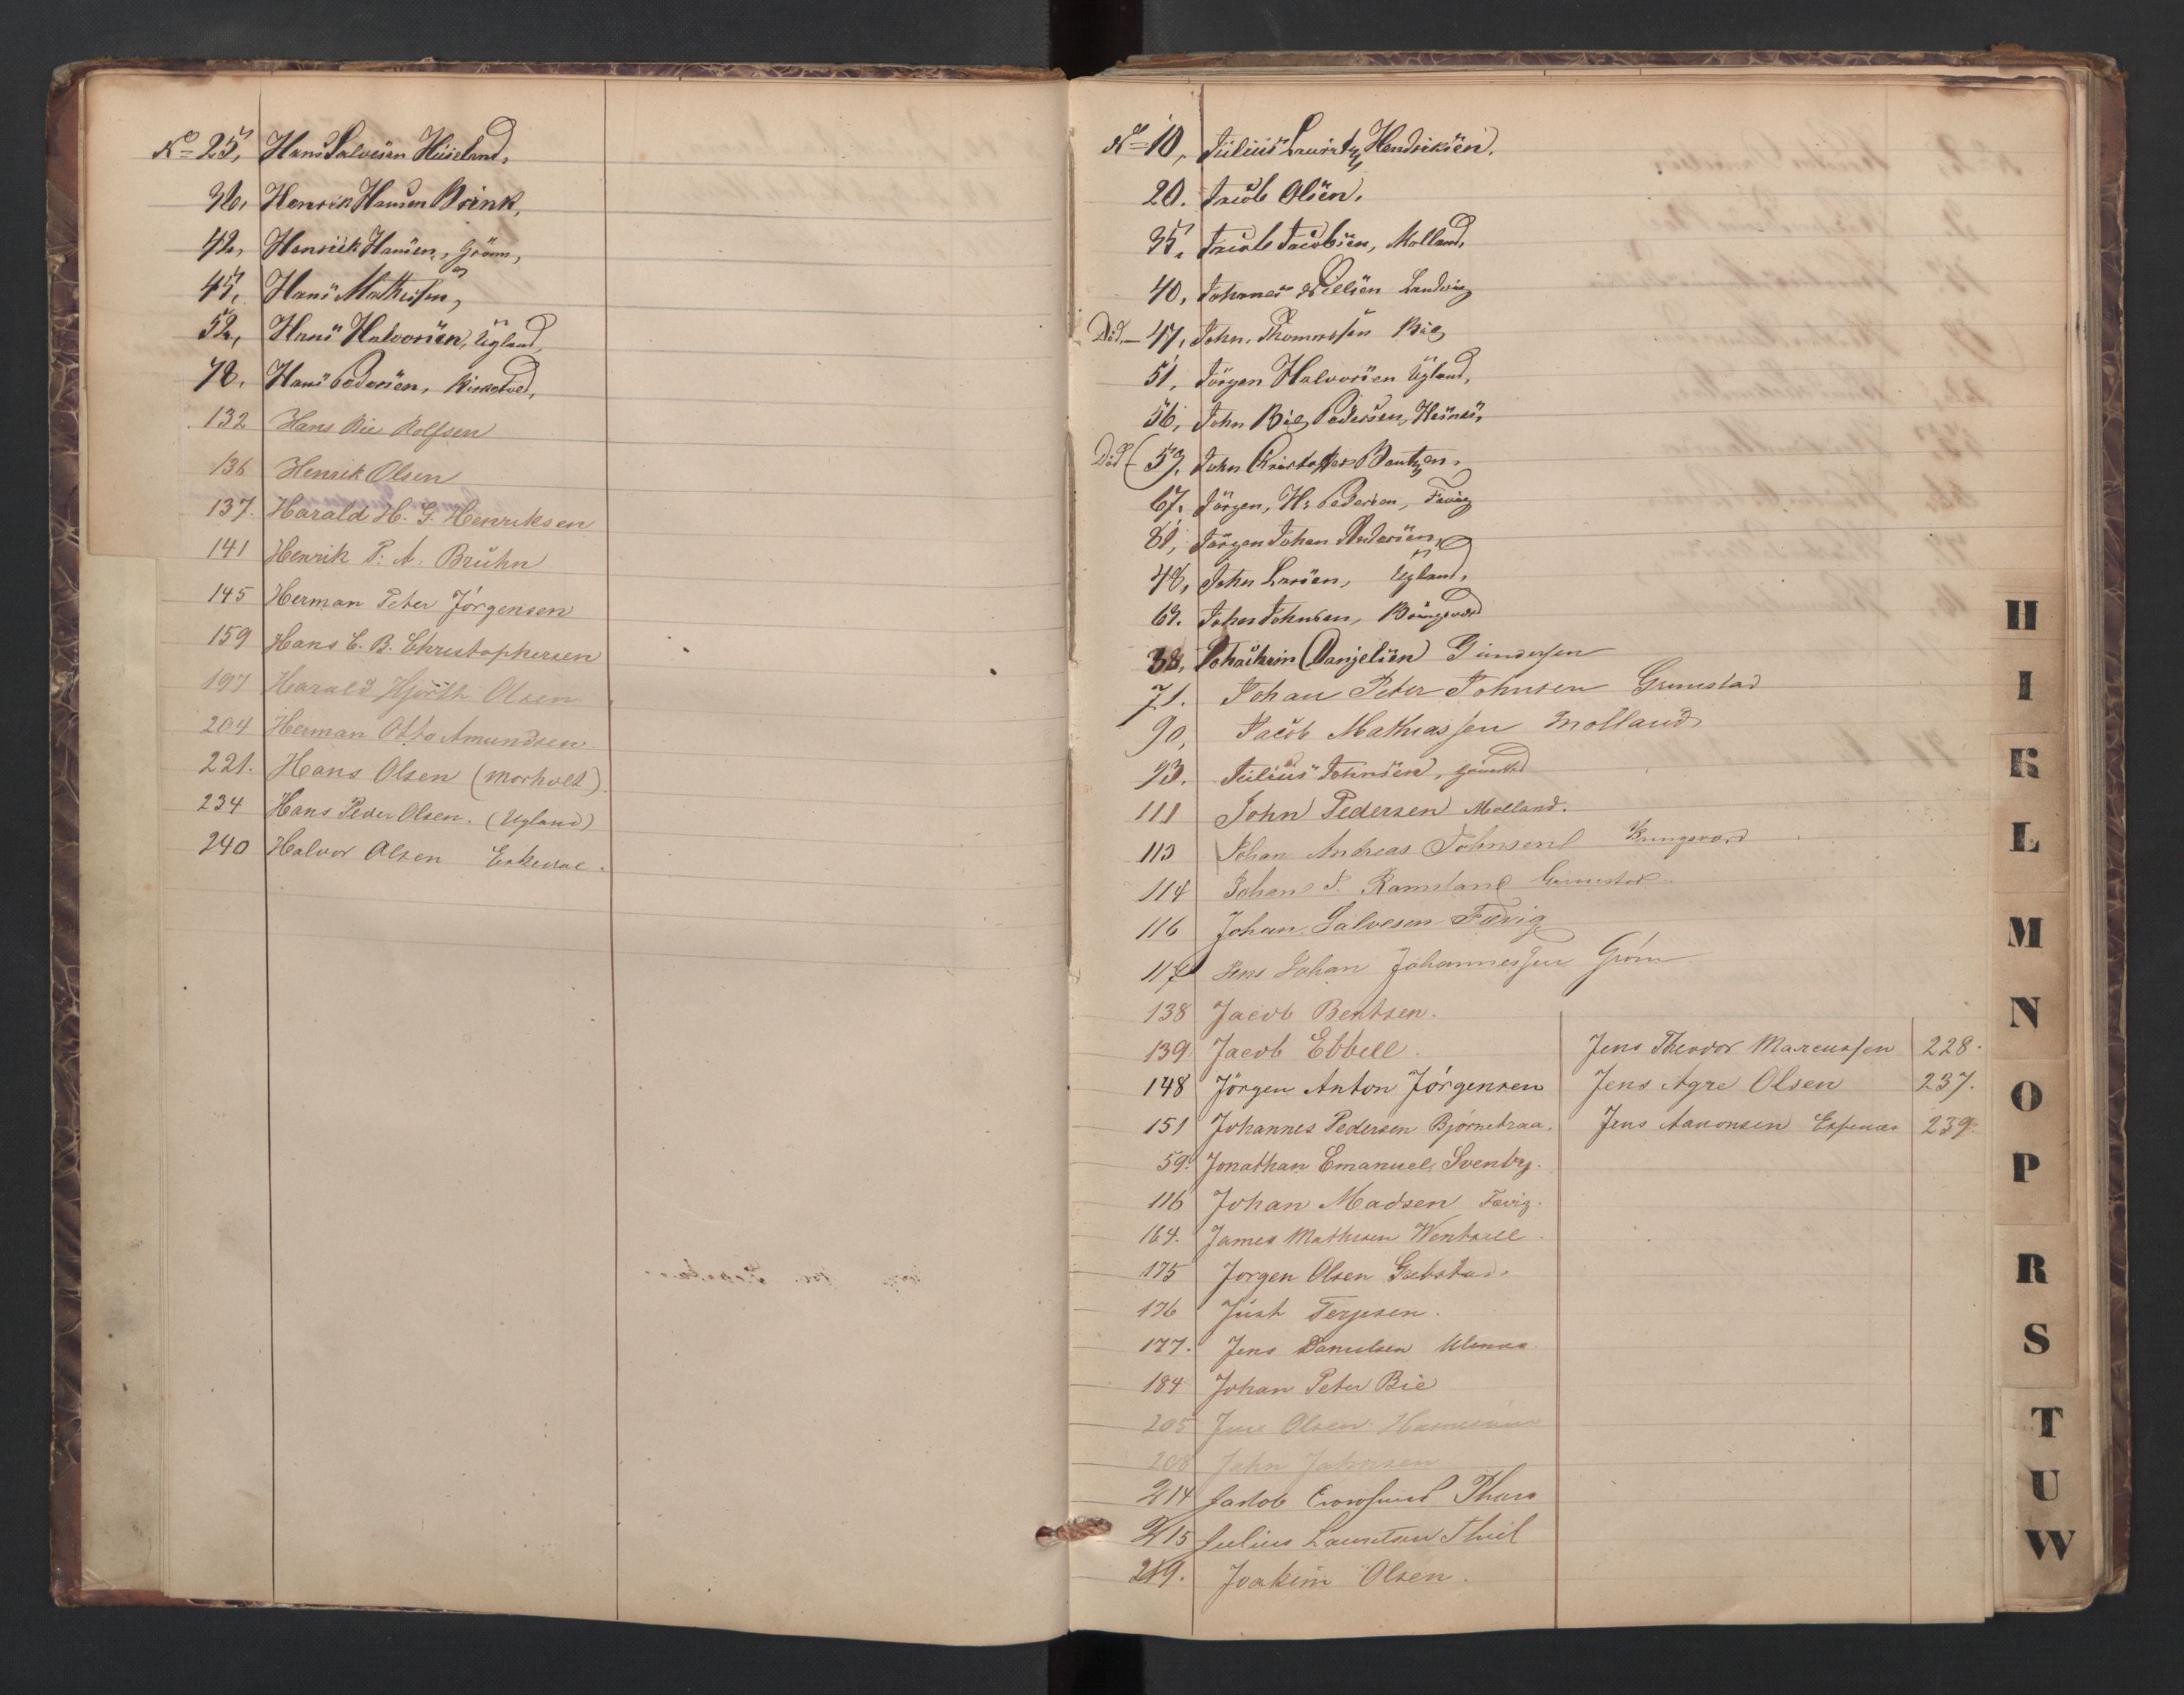 No 25, Hans Salvesen Huseland,
36, Henrik Hansen Brink,
42, Henrick Hansen, Gröm,
45, Hans Mathisen,
52, Hans Halvorsen, Ugland,
78, Hans Pedersen, Kirketved,
132 Hans Bie Rolfsen
136 Henrik Olsen
137. Harald H. G. Henriksen
141 Henrik P. A. Bruhn
145 Herman Peter Jörgensen
159 Hans C. B. Christophersen
197 Harald Hjorth Olsen
204 Herman Otto Amundsen.
221. Hans Olsen (Morholt).
234 Hans Peder Olsen. (Ugland)
240 Halvor Olsen
No 10, Julius Lauritz Hendriksen.
20. Jacob Olsen.
35, Jacob Jacobsen, Molland,
40, Johannes Nielsen Landvig
Död. 47, John. Thomassen Bie
51, Jörgen Halvorsen Ugland,
56, John Bie Pedersen,
Död (57, John Kristoffer Bentzen.
67. Jörgen, H. Pedersen, Fevig
81, Jörgen Johan Andersen,
48, John Larsen, Ugland,
63. Johan Johnsen, Bringsværd
38, Joachim (Danjelsen) Gundersen
71. Johan Peter Johnsen Grimstad
90, Jacob Mathiassen Molland
93. Julius Johnsen, Grimstad
111 John Pedersen Molland.
113 Johan Andreas Johnsen Bringsværd
114 Johan T. Ramsland Grimstad
116 Johan Salvesen Fævig
117 Jens Johan Johannessen Gröm
138 Jacob Bentsen.
139 Jacob Ebbell. Jens Theodor Marcussen 228.
148 Jörgen Anton Jörgensen Jens Agre Olsen 237.
151 Johannes Pedersen Bjørnetraa. Jens Aanonsen Espenes 239.
59. Jonathan Emanuel Svenby.
116 Johan Madsen Fævig.
164. James Mathisen Wentzell.
175 Jorgen Olsen Grebstad.
176 Just Terjesen.
177. Jens Danielsen
184 Johan Peter Bie
205 Jens Olsen
208 John Johnsen
214 Jakob
215 Julius Lauritsen
219. Joakim Olsen.
H
I
K
L
M
N
O
P
R
S
T
U
W